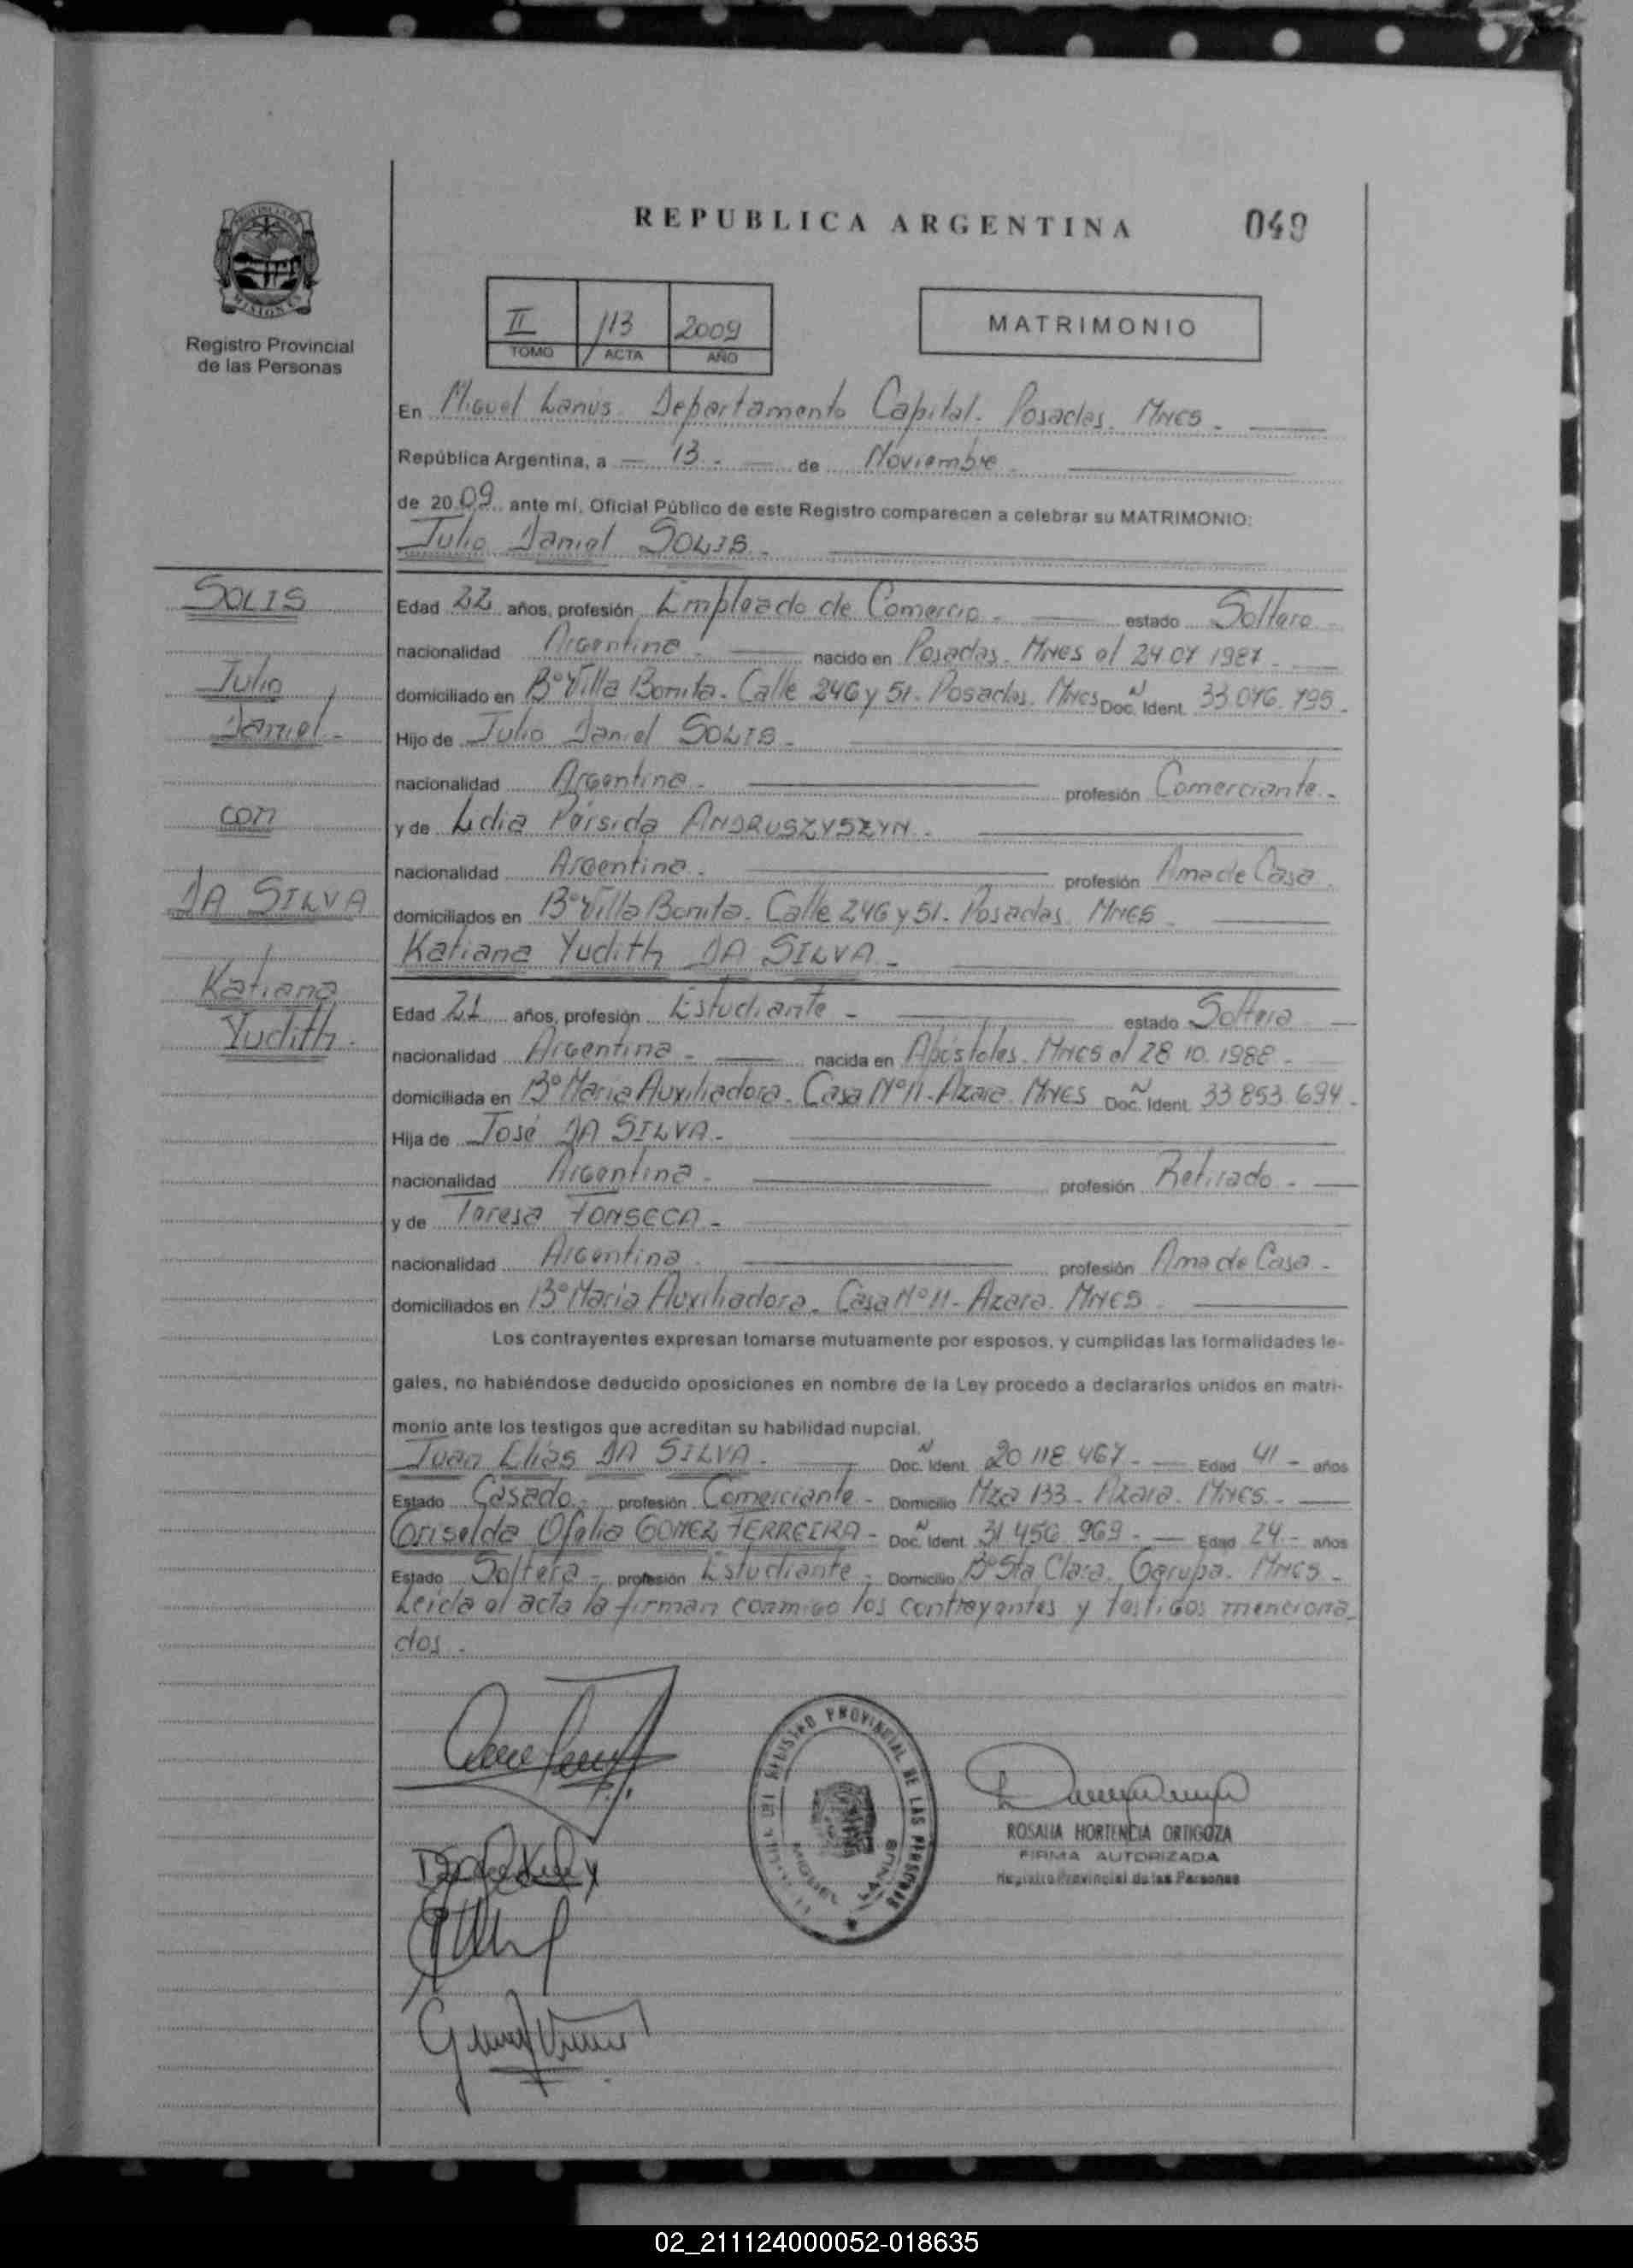 REPUBLICA ARGENTINA
049
Registro Provincial
de las Personas
II 113 2009
TOMO ACTA AÑO
MATRIMONIO
En Miguel Lanús. Departamento Capital. Posadas. Mnes.
República Argentina, a 13. de Noviembre.
de 2009 ante mí, Oficial Público de este Registro comparecen a celebrar su MATRIMONIO:
Julio Daniel SOLIS.
SOLIS
Julio
Daniel.
con
DA SILVA
Katiana
Yudith.
Edad 22 años, profesión Empleado de Comercio. estado Soltero.
nacionalidad Argentina. nacido en Posadas. Mnes el 24.07.1987.
domiciliado en B° Villa Bonita. Calle 246 y 51. Posadas. Mnes Doc. Ident. 33.076.795.
Hijo de Julio Daniel SOLIS.
nacionalidad Argentina. profesión Comerciante.
y de Lidia Pérsida ANDRUSZYSZYN.
nacionalidad Argentina. profesión Ama de Casa
domiciliados en B° Villa Bonita. Calle 246 y 51. Posadas. Mnes
Katiana Yudith DA SILVA.
Edad 21 años, profesión Estudiante. estado Soltera
nacionalidad Argentina. nacida en Apóstoles. Mnes el 28.10.1988.
domiciliada en B° María Auxiliadora. Casa N° 11. Azara. Mnes Doc. Ident. 33.853.694.
Hija de José DA SILVA.
nacionalidad Argentina. profesión Retirado.
y de Teresa FONSECA.
nacionalidad Argentina. profesión Ama de Casa.
domiciliados en B° María Auxiliadora. Casa N° 11. Azara. Mnes
Los contrayentes expresan tomarse mutuamente por esposos, y cumplidas las formalidades le-
gales, no habiéndose deducido oposiciones en nombre de la Ley procedo a declararlos unidos en matri-
monio ante los testigos que acreditan su habilidad nupcial.
Juan Elías DA SILVA. Doc. Ident. 20.118.467. Edad 41 años
Estado Casado. profesión Comerciante. Domicilio Mza 133. Azara. Mnes.
Griselda Ofelia GOMEZ FERREIRA. Doc. Ident. 31.456.969. Edad 24. años
Estado Soltera. profesión Estudiante. Domicilio B° Sta Clara. Garupa. Mnes.
Leida el acta la firman conmigo los contrayentes y testigos menciona
dos.
REGISTRO PROVINCIAL DE LAS PERSONAS
MIGUEL LANUS
ROSALIA HORTENCIA ORTIGOZA
FIRMA AUTORIZADA
Registro Provincial de las Personas
02_211124000052-018635